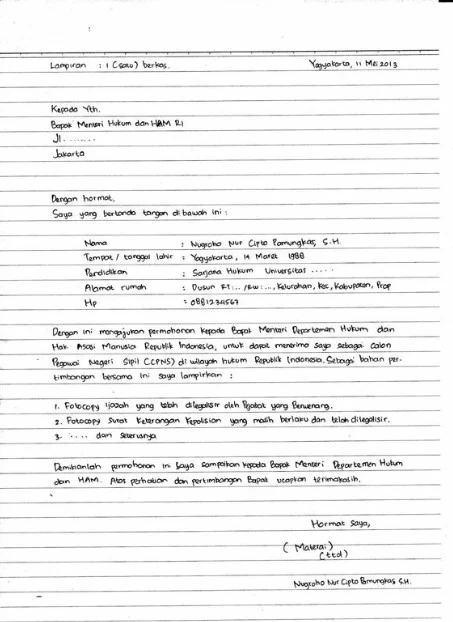 Lampiran : 1 (satu) berkas. Yogyakarta, 11 Mei 2013
Kepada Yth.
Bapak Menteri Hukum dan HAM RI
Jl. ........
Jakarta
Dengan hormat,
Saya yang bertanda tangan dibawah ini :
Nama : Nugroho Nur Cipto Pamungkas, S.H.
Tempat / tanggal lahir : Yogyakarta, 14 Maret 1988
Pendidikan : Sarjana Hukum Universitas .....
Alamat rumah : Dusun RT:.. /RW:..., Kelurahan, Kec, Kabupaten, Prop
Hp : 0881234567
Dengan ini mengajukan permohonan kepada Bapak Menteri Departemen Hukum dan
Hak Asasi Manusia Republik Indonesia, untuk dapat menerima saya sebagai Calon
Pegawai Negeri Sipil (CPNS) di wilayah hukum Republik Indonesia. Sebagai bahan per-
timbangan bersama ini saya lampirkan :
1. Fotocopy ijazah yang telah dilegalisir oleh Pejabat yang Berwenang.
2. Fotocopy Surat Keterangan Kepolisian yang masih berlaku dan telah dilegalisir.
3. .... dan seterusnya
Demikianlah permohonan ini saya sampaikan kepada Bapak Menteri Departemen Hukum
dan HAM. Atas perhatian dan pertimbangan Bapak ucapkan terimakasih.
Hormat saya,
( Materai )
( ttd )
Nugroho Nur Cipto Pamungkas S.H.